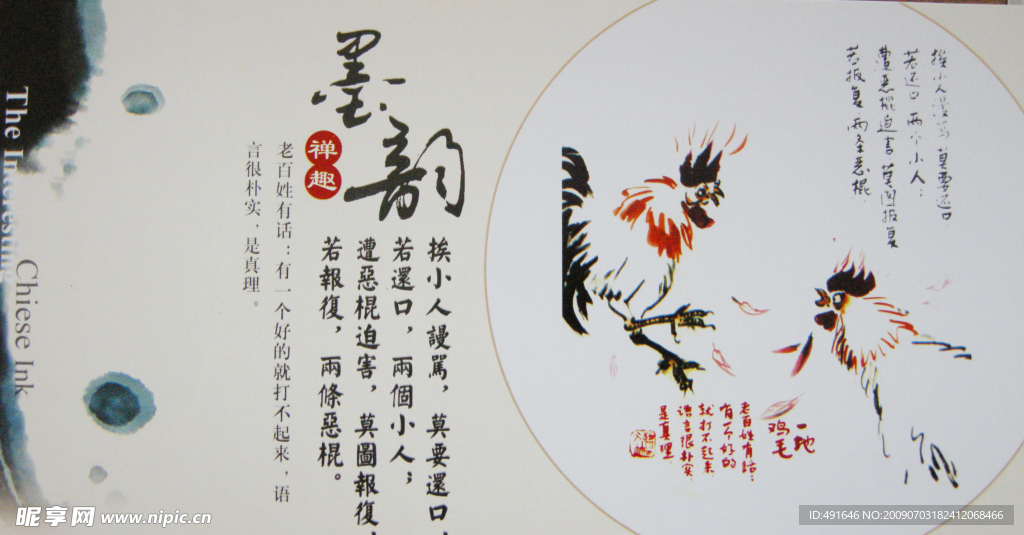 墨韵
禅趣
挨小人謾罵，莫要還口，
若還口，兩個小人；
遭惡棍迫害，莫圖報復，
若報復，兩條惡棍。
老百姓有话：有一个好的就打不起来，语
言很朴实，是真理。
The Interesting
Chiese Ink
挨小人谩骂 莫要还口
若还口 两个小人；
遭恶棍迫害 莫图报复
若报复 两条恶棍.
一地
鸡毛
老百姓有话：
有一个好的
就打不起来
语言很朴实.
是真理.
昵享网 www.nipic.cn
ID:491646 NO:20090703182412068466